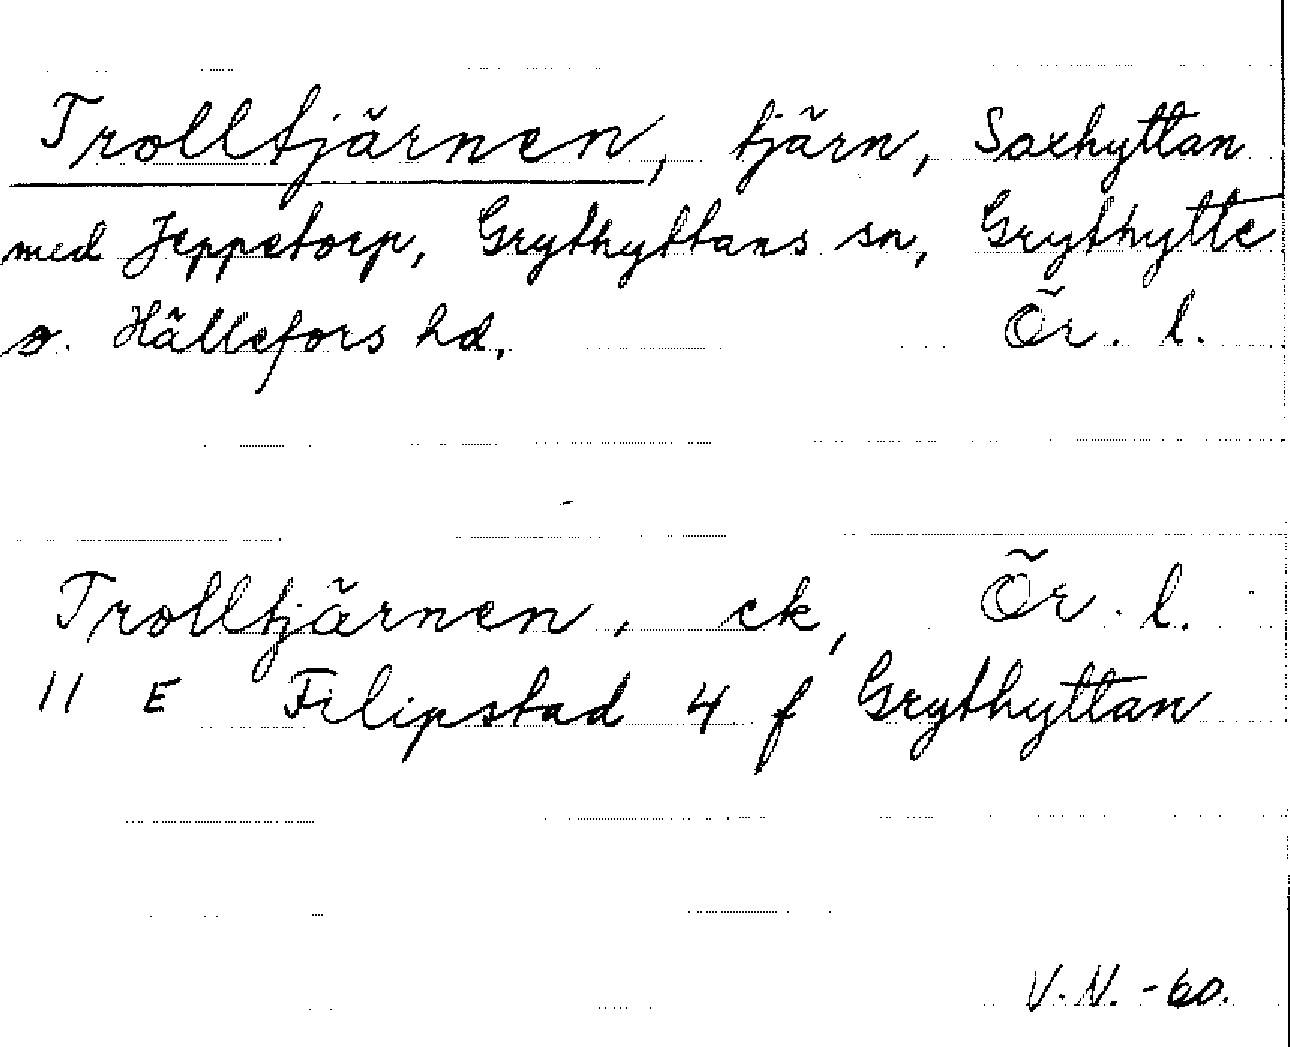 Trolltjärnen, tjärn, Saxhyttan
med Jeppetorp, Grythyttans sn, Grythytte
o. Hällefors hd, Ör. l.
Trolltjärnen. ek, Ör. l.
11 E Filipstad 4 f Grythyttan
V.N. -60.